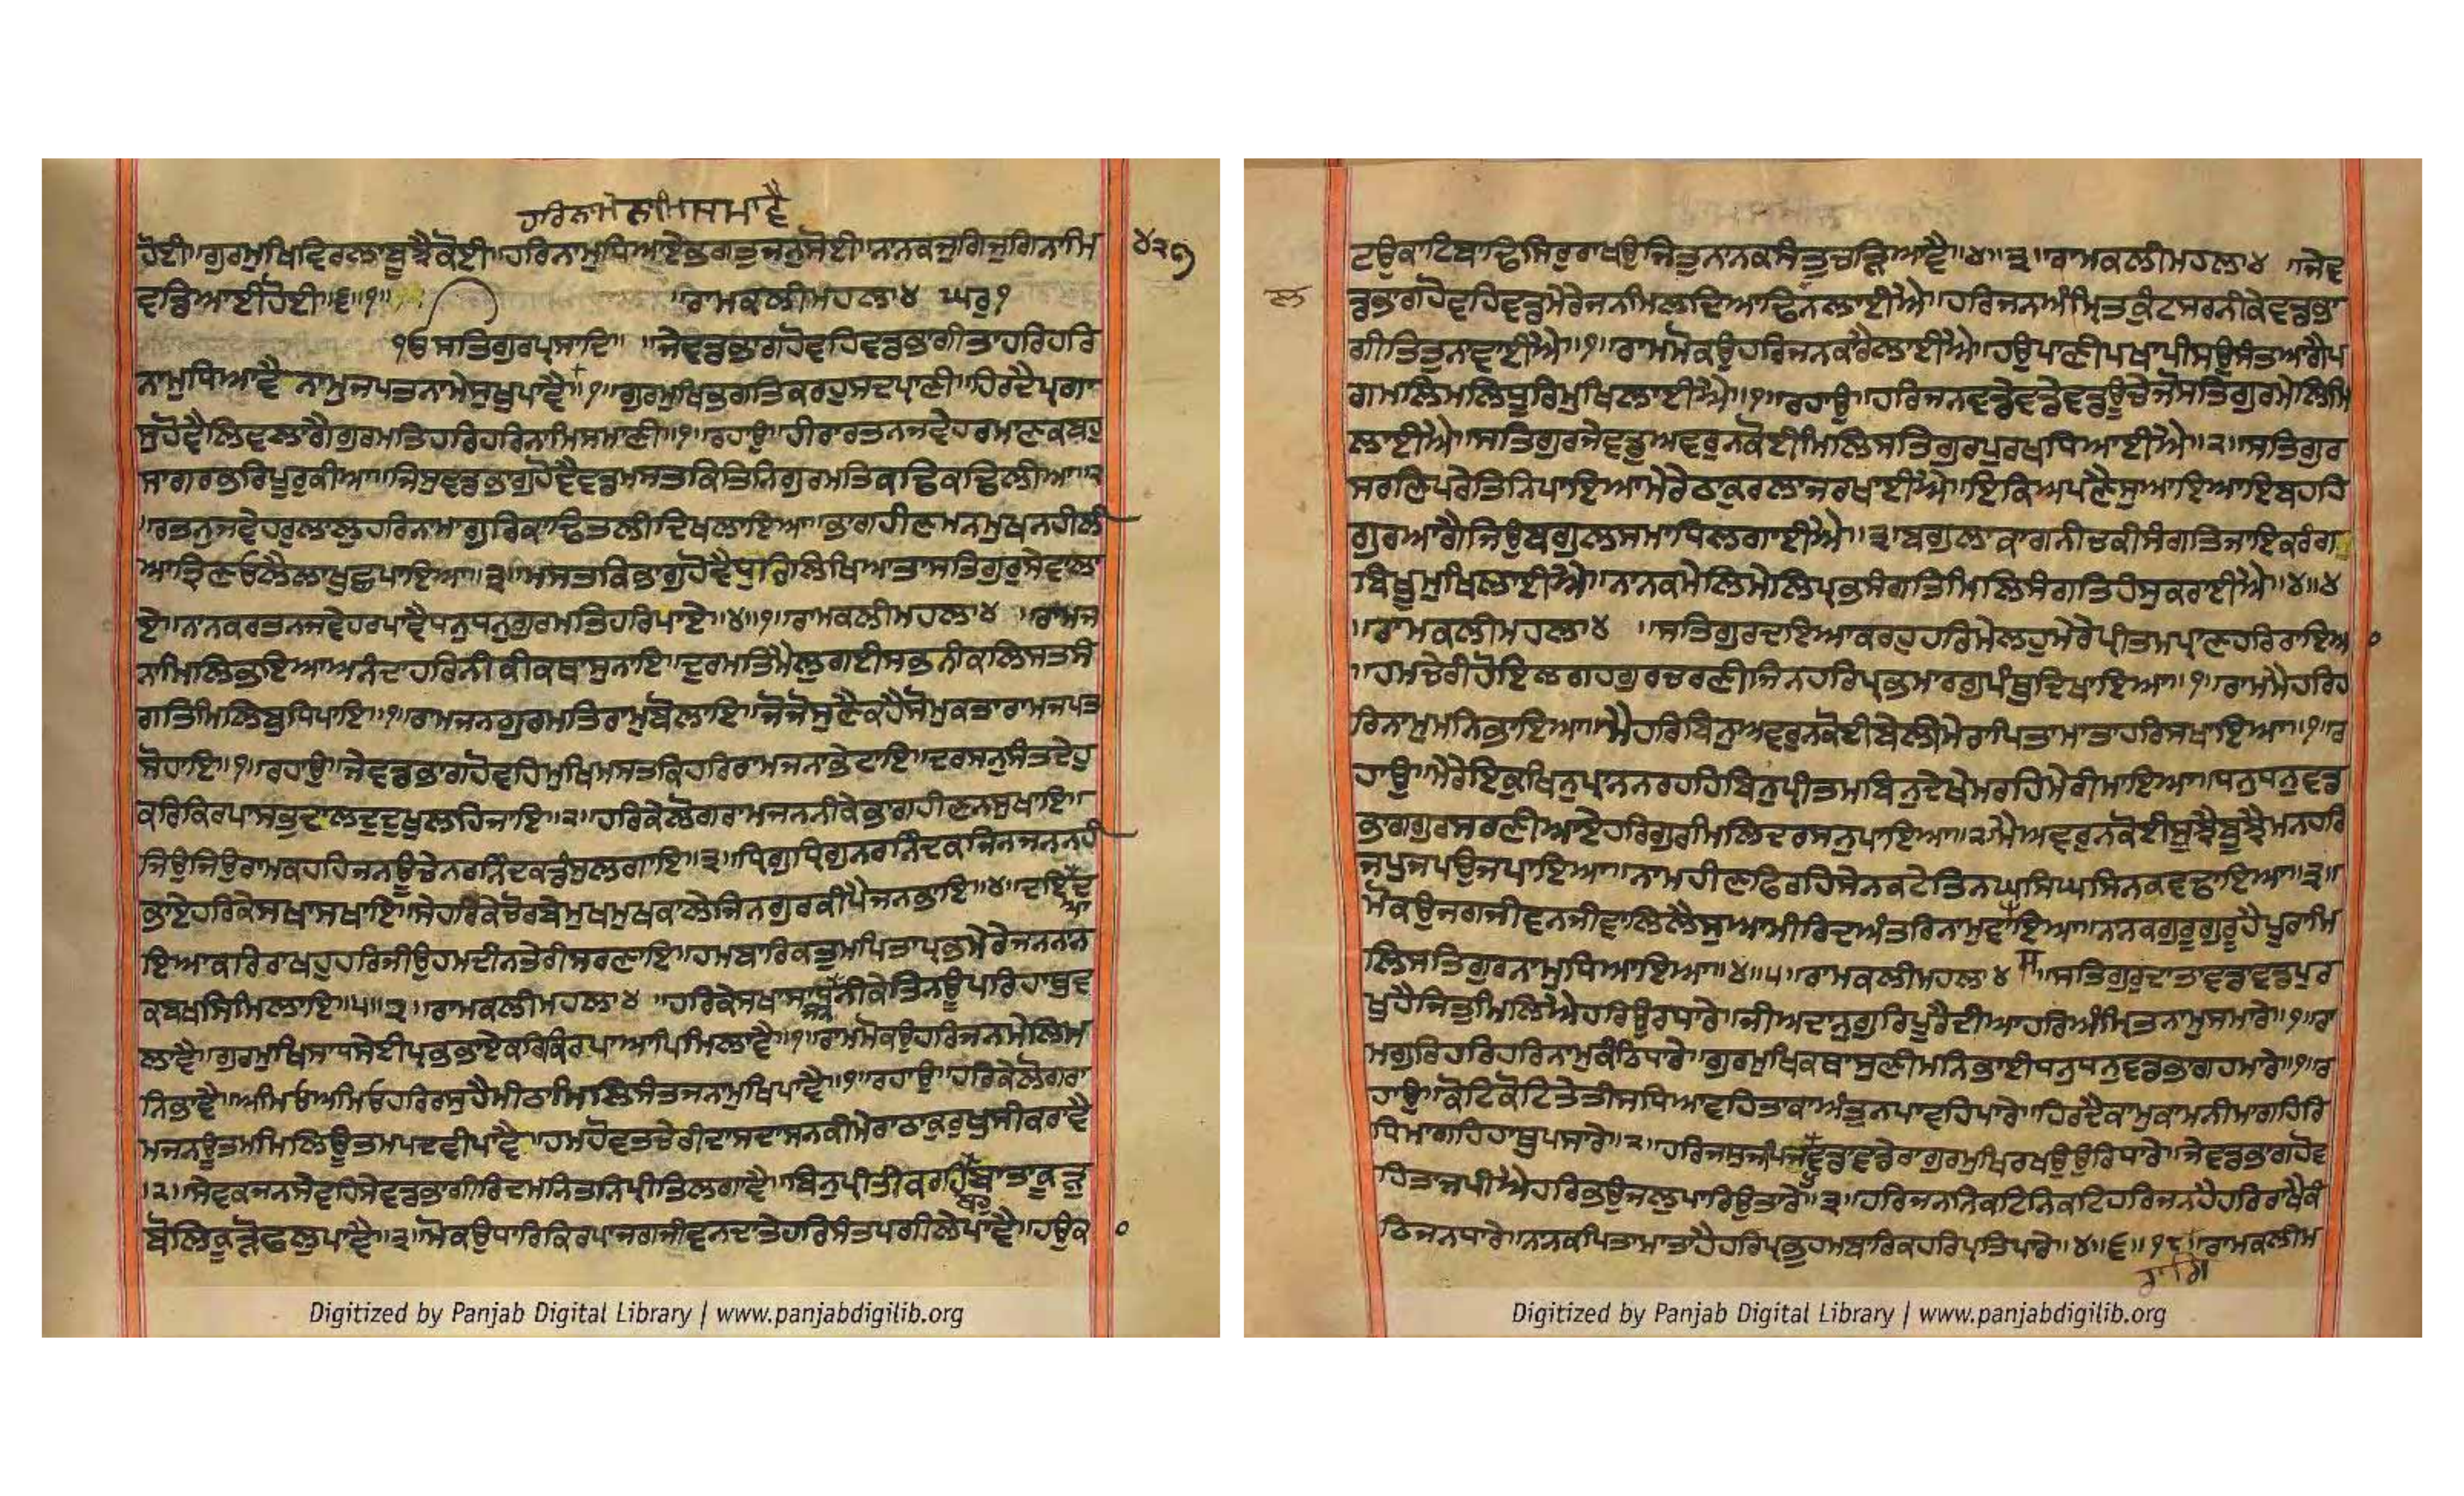 ਹਰਿਨਾਮੇਨਾਮਿਸਮਾਵੈ
ਹੋਈ॥ਗੁਰਮੁਖਿਵਿਰਲਾਬੂਝੈਕੋਈ॥ਹਰਿਨਾਮੁਧਿਆਏਭਗਤੁਜਨੁਸੋਈ॥ਨਾਨਕਜੁਗਿਜੁਗਿਨਾਮਿ
੪੨੭
ਵਡਿਆਈਹੋਈ॥੬॥੧॥ ॥ਰਾਮਕਲੀਮਹਲਾ੪ ਘਰੁ੧
ੴਸਤਿਗੁਰਪ੍ਰਸਾਦਿ॥ ॥ਜੇਵਡਭਾਗਹੋਵਹਿਵਡਭਾਗੀਤਾਹਰਿਹਰਿ
ਨਾਮੁਧਿਆਵੈ ਨਾਮੁਜਪਤਨਾਮੇਸੁਖੁਪਾਵੈ॥੧॥ਗੁਰਮੁਖਿਭਗਤਿਕਰਹੁਸਦਪ੍ਰਾਣੀ॥ਹਿਰਦੈਪ੍ਰਗਾ
ਸੁਹੋਵੈਲਿਵਲਾਗੈਗੁਰਮਤਿਹਰਿਹਰਿਨਾਮਿਸਮਾਣੀ॥੧॥ਰਹਾਉ॥ਹੀਰਾਰਤਨਜਵੇਹਰਮਾਣਕਬਹੁ
ਸਾਗਰਭਰਿਪੂਰੁਕੀਆ॥ਜਿਸੁਵਡਭਾਗੁਹੋਵੈਵਡਮਸਤਕਿਤਿਨਿਗੁਰਮਤਿਕਢਿਕਢਿਲੀਆ॥੨
॥ਰਤਨੁਜਵੇਹਰੁਲਾਲੁਹਰਿਨਾਮਾਗੁਰਿਕਾਢਿਤਲੀਦਿਖਲਾਇਆ॥ਭਾਗਹੀਣਮਨਮੁਖਨਹੀਲੀ
ਆਤ੍ਰਿਣਓਲੈਲਾਖੁਛਪਾਇਆ॥੩॥ਮਸਤਕਿਭਾਗੁਹੋਵੈਧੁਰਿਲਿਖਿਆਤਾਸਤਿਗੁਰੁਸੇਵਲਾ
ਏ॥ਨਾਨਕਰਤਨਜਵੇਹਰਪਾਵੈਧਨੁਧਨੁਗੁਰਮਤਿਹਰਿਪਾਏ॥੪॥੧॥ਰਾਮਕਲੀਮਹਲਾ੪ ॥ਰਾਮਜ
ਨਾਮਿਲਿਭਇਆਅਨੰਦਾਹਰਿਨੀਕੀਕਥਾਸੁਨਾਇ॥ਦੁਰਮਤਿਮੈਲੁਗਈਸਭਨੀਕਲਿਸਤਸੰ
ਗਤਿਮਿਲਿਬੁਧਿਪਾਇ॥੧॥ਰਾਮਜਨਗੁਰਮਤਿਰਾਮੁਬੋਲਾਇ॥ਜੋਜੋਸੁਣੈਕਹੈਸੋਮੁਕਤਾਰਾਮਜਪਤ
ਸੋਹਾਇ॥੧॥ਰਹਾਉ॥ਜੇਵਡਭਾਗਹੋਵਹਿਮੁਖਿਮਸਤਕਿਹਰਿਰਾਮਜਨਾਭੇਟਾਇ॥ਦਰਸਨੁਸੰਤਦੇਹੁ
ਕਰਿਕਿਰਪਾਸਭੁਦਾਲਦੁਦੁਖੁਲਹਿਜਾਇ॥੨॥ਹਰਿਕੇਲੋਗਰਾਮਜਨਨੀਕੇਭਾਗਹੀਣਨਸੁਖਾਇ॥
ਜਿਉਜਿਉਰਾਮਕਹਹਿਜਨਊਚੇਨਰਨਿੰਦਕਡੰਸੁਲਗਾਇ॥੩॥ਧ੍ਰਿਗੁਧ੍ਰਿਗੁਨਰਨਿੰਦਕਜਿਨਜਨਨਹੀ
ਭਾਏਹਰਿਕੇਸਖਾਸਖਾਇ॥ਸੇਹਰਿਕੇਚੋਰਬੇਮੁਖਮੁਖਕਾਲੇਜਿਨਗੁਰਕੀਪੈਜਨਭਾਇ॥੪॥ਦਇਆਦ
ਇਆਕਰਿਰਾਖਹੁਹਰਿਜੀਉਹਮਦੀਨਤੇਰੀਸਰਣਾਇ॥ਹਮਬਾਰਿਕਤੁਮਪਿਤਾਪ੍ਰਭਮੇਰੇਜਨਨਾਨ
ਕਬਖਸਿਮਿਲਾਇ॥੫॥੨॥ਰਾਮਕਲੀਮਹਲਾ੪ ॥ਹਰਿਕੇਸਖਾਸਾਧਜਨਨੀਕੇਤਿਨਊਪਰਿਹਾਥੁਵ
ਤਾਵੈ॥ਗੁਰਮੁਖਿਸਾਧਸੇਈਪ੍ਰਭਭਾਏਕਰਿਕਿਰਪਾਆਪਿਮਿਲਾਵੈ॥੧॥ਰਾਮਮੋਕਉਹਰਿਜਨਮੇਲਿਮ
ਨਿਭਾਵੈ॥ਅਮਿਓਅਮਿਓਹਰਿਰਸੁਹੈਮੀਠਾਮਿਲਿਸੰਤਜਨਾਮੁਖਿਪਾਵੈ॥੧॥ਰਹਾਉ॥ਹਰਿਕੇਲੋਗਰਾ
ਮਜਨਊਤਮਮਿਲਿਊਤਮਪਦਵੀਪਾਵੈ॥ਹਮਹੋਵਤਚੇਰੀਦਾਸਦਾਸਨਕੀਮੇਰਾਠਾਕੁਰੁਖੁਸੀਕਰਾਵੈ
॥੨॥ਸੇਵਕਜਨਸੇਵਹਿਸੇਵਡਭਾਗੀਰਿਦਮਨਿਤਨਿਪ੍ਰੀਤਿਲਗਾਵੈ॥ਬਿਨੁਪ੍ਰੀਤੀਕਰਹਿਬਹੁਬਾਤਾਕੂੜੁ
ਬੋਲਿਕੂੜੋਫਲੁਪਾਵੈ॥੩॥ਮੋਕਉਧਾਰਿਕਿਰਪਾਜਗਜੀਵਨਦਾਤੇਹਰਿਸੰਤਪਗੀਲੇਪਾਵੈ॥ਹਉਕ
Digitized by Panjab Digital Library | www.panjabdigilib.org
ਟਉਕਾਟਿਬਾਢਿਸਿਰੁਰਾਖਉਜਿਤੁਨਾਨਕਸੰਤੁਚੜਿਆਵੈ॥੪॥੩॥ਰਾਮਕਲੀਮਹਲਾ੪ ॥ਜੇਵ
ਲ
ਡਭਾਗਹੋਵਹਿਵਡਮੇਰੇਜਨਮਿਲਦਿਆਢਿਲਨਲਾਈਐ॥ਹਰਿਜਨਅੰਮ੍ਰਿਤਕੁੰਟਸਰਨੀਕੇਵਡਭਾ
ਗੀਤਿਤੁਨਾਵਾਈਐ॥੧॥ਰਾਮਮੋਕਉਹਰਿਜਨਕਾਰੈਲਾਈਐ॥ਹਉਪਾਣੀਪਖਾਪੀਸਉਸੰਤਆਗੈਪ
ਗਮਲਿਮਲਿਧੂਰਿਮੁਖਿਲਾਈਐ॥੧॥ਰਹਾਉ॥ਹਰਿਜਨਵਡੇਵਡੇਵਡਊਚੇਜੋਸਤਿਗੁਰਮੇਲਿਮਿ
ਲਾਈਐ॥ਸਤਿਗੁਰਜੇਵਡੁਅਵਰੁਨਕੋਈਮਿਲਿਸਤਿਗੁਰਪੁਰਖਧਿਆਈਐ॥੨॥ਸਤਿਗੁਰ
ਸਰਣਿਪਰੇਤਿਨਿਪਾਇਆਮੇਰੇਠਾਕੁਰਲਾਜਰਖਾਈਐ॥ਇਕਿਅਪਣੈਸੁਆਇਆਇਬਹਹਿ
ਗੁਰਆਗੈਜਿਉਬਗੁਲਸਮਾਧਿਲਗਾਈਐ॥੩॥ਬਗੁਲਾਕਾਗਨੀਚਕੀਸੰਗਤਿਜਾਇਕਰੰਗ
ਬਿਖੂਮੁਖਿਲਾਈਐ॥ਨਾਨਕਮੇਲਿਮੇਲਿਪ੍ਰਭਸੰਗਤਿਮਿਲਿਸੰਗਤਿਹੰਸੁਕਰਾਈਐ॥੪॥੪
॥ਰਾਮਕਲੀਮਹਲਾ੪ ॥ਸਤਿਗੁਰਦਇਆਕਰਹੁਹਰਿਮੇਲਹੁਮੇਰੇਪ੍ਰੀਤਮਪ੍ਰਾਣਹਰਿਰਾਇਆ
॥ਹਮਚੇਰੀਹੋਇਲਗਹਗੁਰਚਰਣੀਜਿਨਹਰਿਪ੍ਰਭਮਾਰਗੁਪੰਥੁਦਿਖਾਇਆ॥੧॥ਰਾਮਮੈਹਰਿਹ
ਰਿਨਾਮੁਮਨਿਭਾਇਆ॥ਮੈਹਰਿਬਿਨੁਅਵਰੁਨਕੋਈਬੇਲੀਮੇਰਾਪਿਤਾਮਾਤਾਹਰਿਸਖਾਇਆ॥੧॥ਰ
ਹਾਉ॥ਮੇਰੇਇਕੁਖਿਨੁਪ੍ਰਾਨਨਰਹਹਿਬਿਨੁਪ੍ਰੀਤਮਬਿਨੁਦੇਖੇਮਰਹਿਮੇਰੀਮਾਇਆ॥ਧਨੁਧਨੁਵਡ
ਭਾਗਗੁਰਸਰਣੀਆਏਹਰਿਗੁਰਮਿਲਿਦਰਸਨੁਪਾਇਆ॥੨॥ਮੈਅਵਰੁਨਕੋਈਸੂਝੈਬੂਝੈਮਨਹਰਿ
ਜਪੁਜਪਉਜਪਾਇਆ॥ਨਾਮਹੀਣਫਿਰਹਿਸੇਨਕਟੇਤਿਨਘਸਿਘਸਿਨਕਵਢਾਇਆ॥੩॥
ਮੋਕਉਜਗਜੀਵਨਜੀਵਾਲਿਲੈਸੁਆਮੀਰਿਦਅੰਤਰਿਨਾਮੁਵਸਾਇਆ॥ਨਾਨਕਗੁਰੂਗੁਰੂਹੈਪੂਰਾਮਿ
ਲਿਸਤਿਗੁਰਨਾਮੁਧਿਆਇਆ॥੪॥੫॥ਰਾਮਕਲੀਮਹਲਾ੪ ॥ਸਤਿਗੁਰੁਦਾਤਾਵਡਾਵਡਪੁਰ
ਖੁਹੈਜਿਤੁਮਿਲਿਐਹਰਿਉਰਧਾਰੇ॥ਜੀਅਦਾਨੁਗੁਰਿਪੂਰੈਦੀਆਹਰਿਅੰਮ੍ਰਿਤਨਾਮੁਸਮਾਰੇ॥੧॥ਰਾ
ਮਗੁਰਿਹਰਿਹਰਿਨਾਮੁਕੰਠਿਧਾਰੇ॥ਗੁਰਮੁਖਿਕਥਾਸੁਣੀਮਨਿਭਾਈਧਨੁਧਨੁਵਡਭਾਗਹਮਾਰੇ॥੧॥ਰ
ਹਾਉ॥ਕੋਟਿਕੋਟਿਤੇਤੀਸਧਿਆਵਹਿਤਾਕਾਅੰਤੁਨਪਾਵਹਿਪਾਰੇ॥ਹਿਰਦੈਕਾਮੁਕਾਮਨੀਮਾਗਹਿਰਿ
ਧਿਮਾਗਹਿਹਾਥੁਪਸਾਰੇ॥੨॥ਹਰਿਜਸੁਜਪਿਜਪੁਵਡਾਵਡੇਰਾਗੁਰਮੁਖਿਰਖਉਉਰਿਧਾਰੇ॥ਜੇਵਡਭਾਗਹੋਵ
ਹਿਤਾਜਪੀਐਹਰਿਭਉਜਲੁਪਾਰਿਉਤਾਰੇ॥੩॥ਹਰਿਜਨਨਿਕਟਿਨਿਕਟਿਹਰਿਜਨਹੈਹਰਿਰਾਖੈਕੰ
ਠਿਜਨਧਾਰੇ॥ਨਾਨਕਪਿਤਾਮਾਤਾਹੈਹਰਿਪ੍ਰਭੁਹਮਬਾਰਿਕਹਰਿਪ੍ਰਤਿਪਾਰੇ॥੪॥੬॥੧੮॥ਰਾਮਕਲੀਮ
ਰਾਗਿ
Digitized by Panjab Digital Library | www.panjabdigilib.org